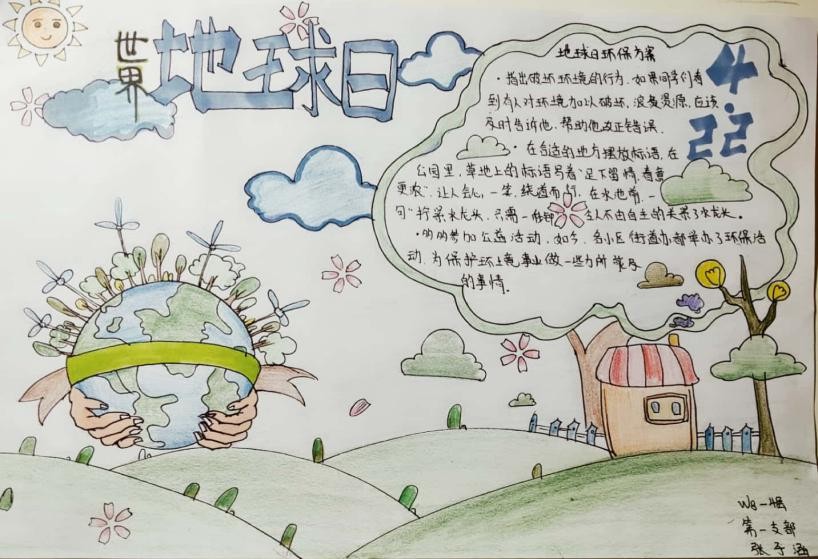 世界
地球日
4.22
地球日环保方案
·指出破坏环境的行为,如果同学们看
到有人对环境加以破坏,浪费资源,应该
及时告诉他,帮助他改正错误.
·在合适的地方摆放标语,在
公园里,草地上的标语写着"足下留情,春意
更浓",让人会心一笑,绕道而行,在水池前,一
句"拧紧水龙头,只需一秒钟
人不由自主的关紧了水龙头.
参加公益活动,如今,各小区街道办都举办了环保活
动,为保护环境事业做一些力所能及
的事情.
第一支部
张予涵